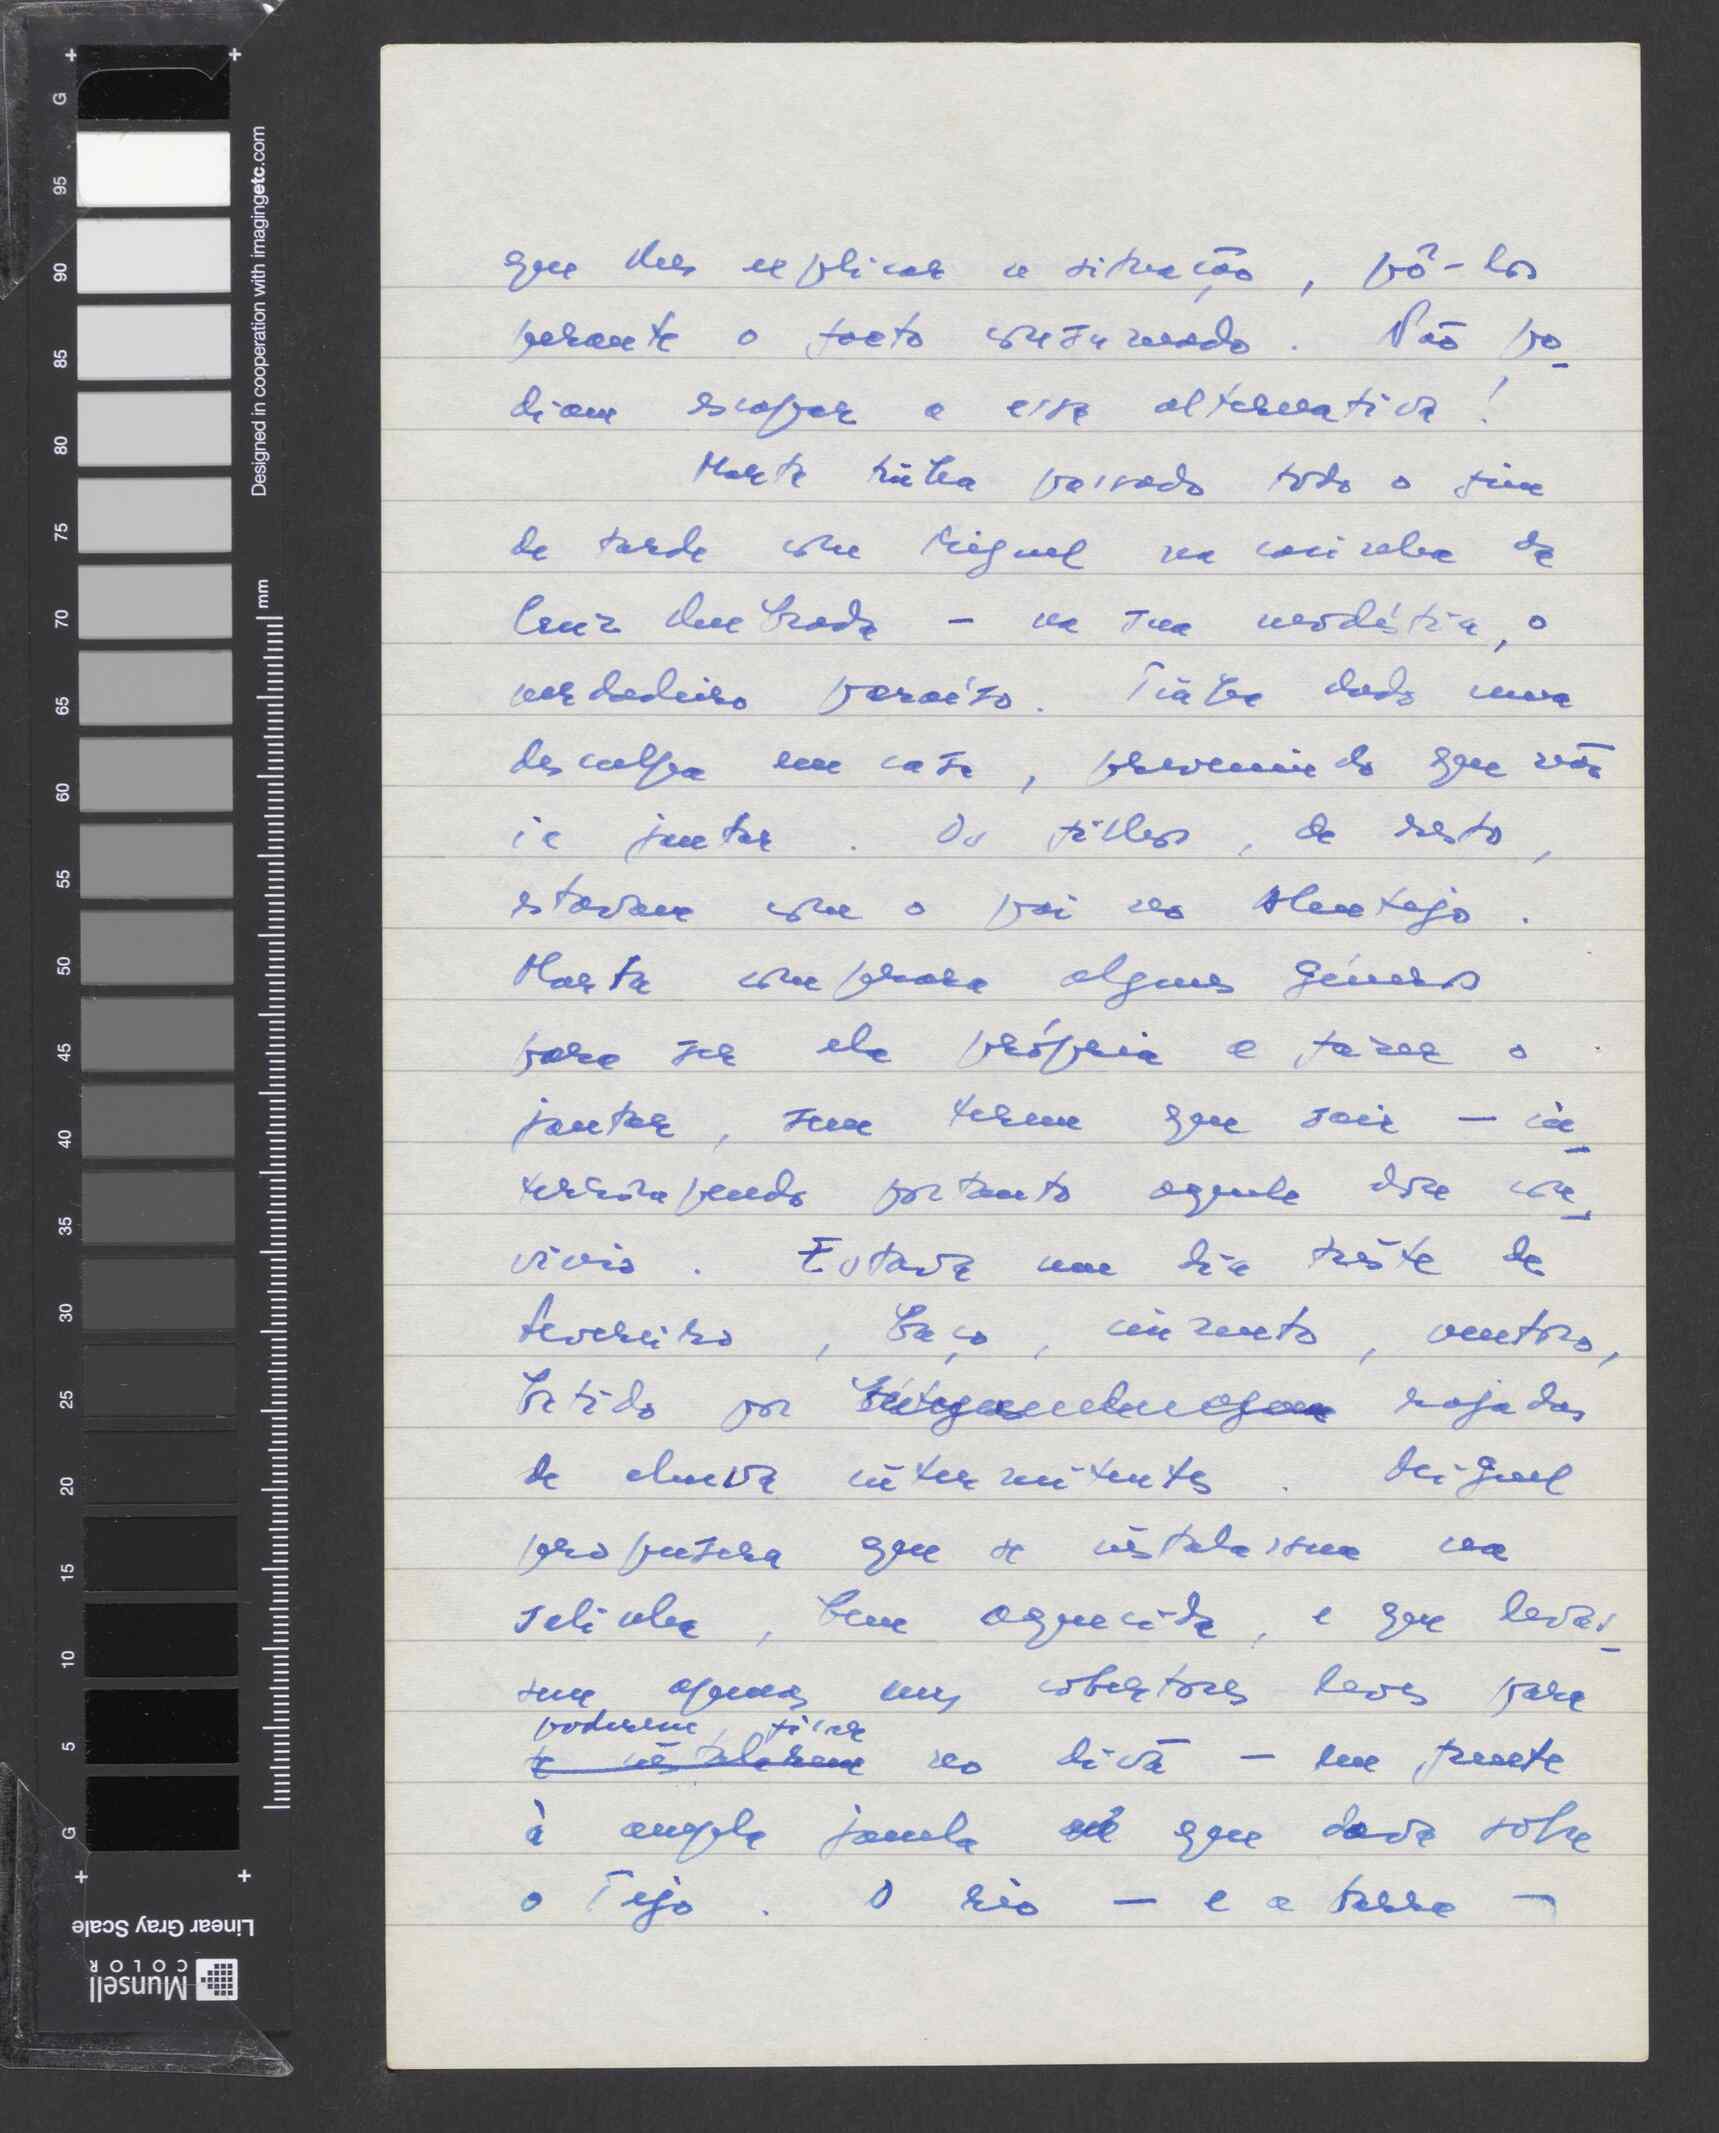 que lhes explicar a situação, pô-los
perante o facto consumado. Não po-
diam escapar a essa alternativa!
Marta tinha passado todo o fim
de tarde com Miguel na casinha da
– na sua modéstia, o
verdadeiro paraíso. Tinha dado uma
desculpa em casa, prevenindo que não
ia jantar. Os filhos, de resto,
estavam com o pai no Alentejo.
Marta comprara alguns géneros
para ser ela própria a fazer o
jantar, sem terem que sair – in-
terrompendo portanto aquele doce con-
vívio. Estava um dia triste de
fevereiro, baço, cinzento, ventoso,
batido por rajadas
de chuva intermitentes. Miguel
propusera que se instalassem na
salinha, bem aquecida, e que levas-
sem apenas uns cobertores leves para
poderem ficar
se instalarem no divã – em frente
à ampla janela que dava sobre
o Tejo. O rio – e a barra –
G
95
90
85
80
75
70
65
60
55
50
45
40
35
30
25
20
15
10
5
G
Designed in cooperation with imagingetc.com
mm
Linear Gray Scale
Munsell
COLOR